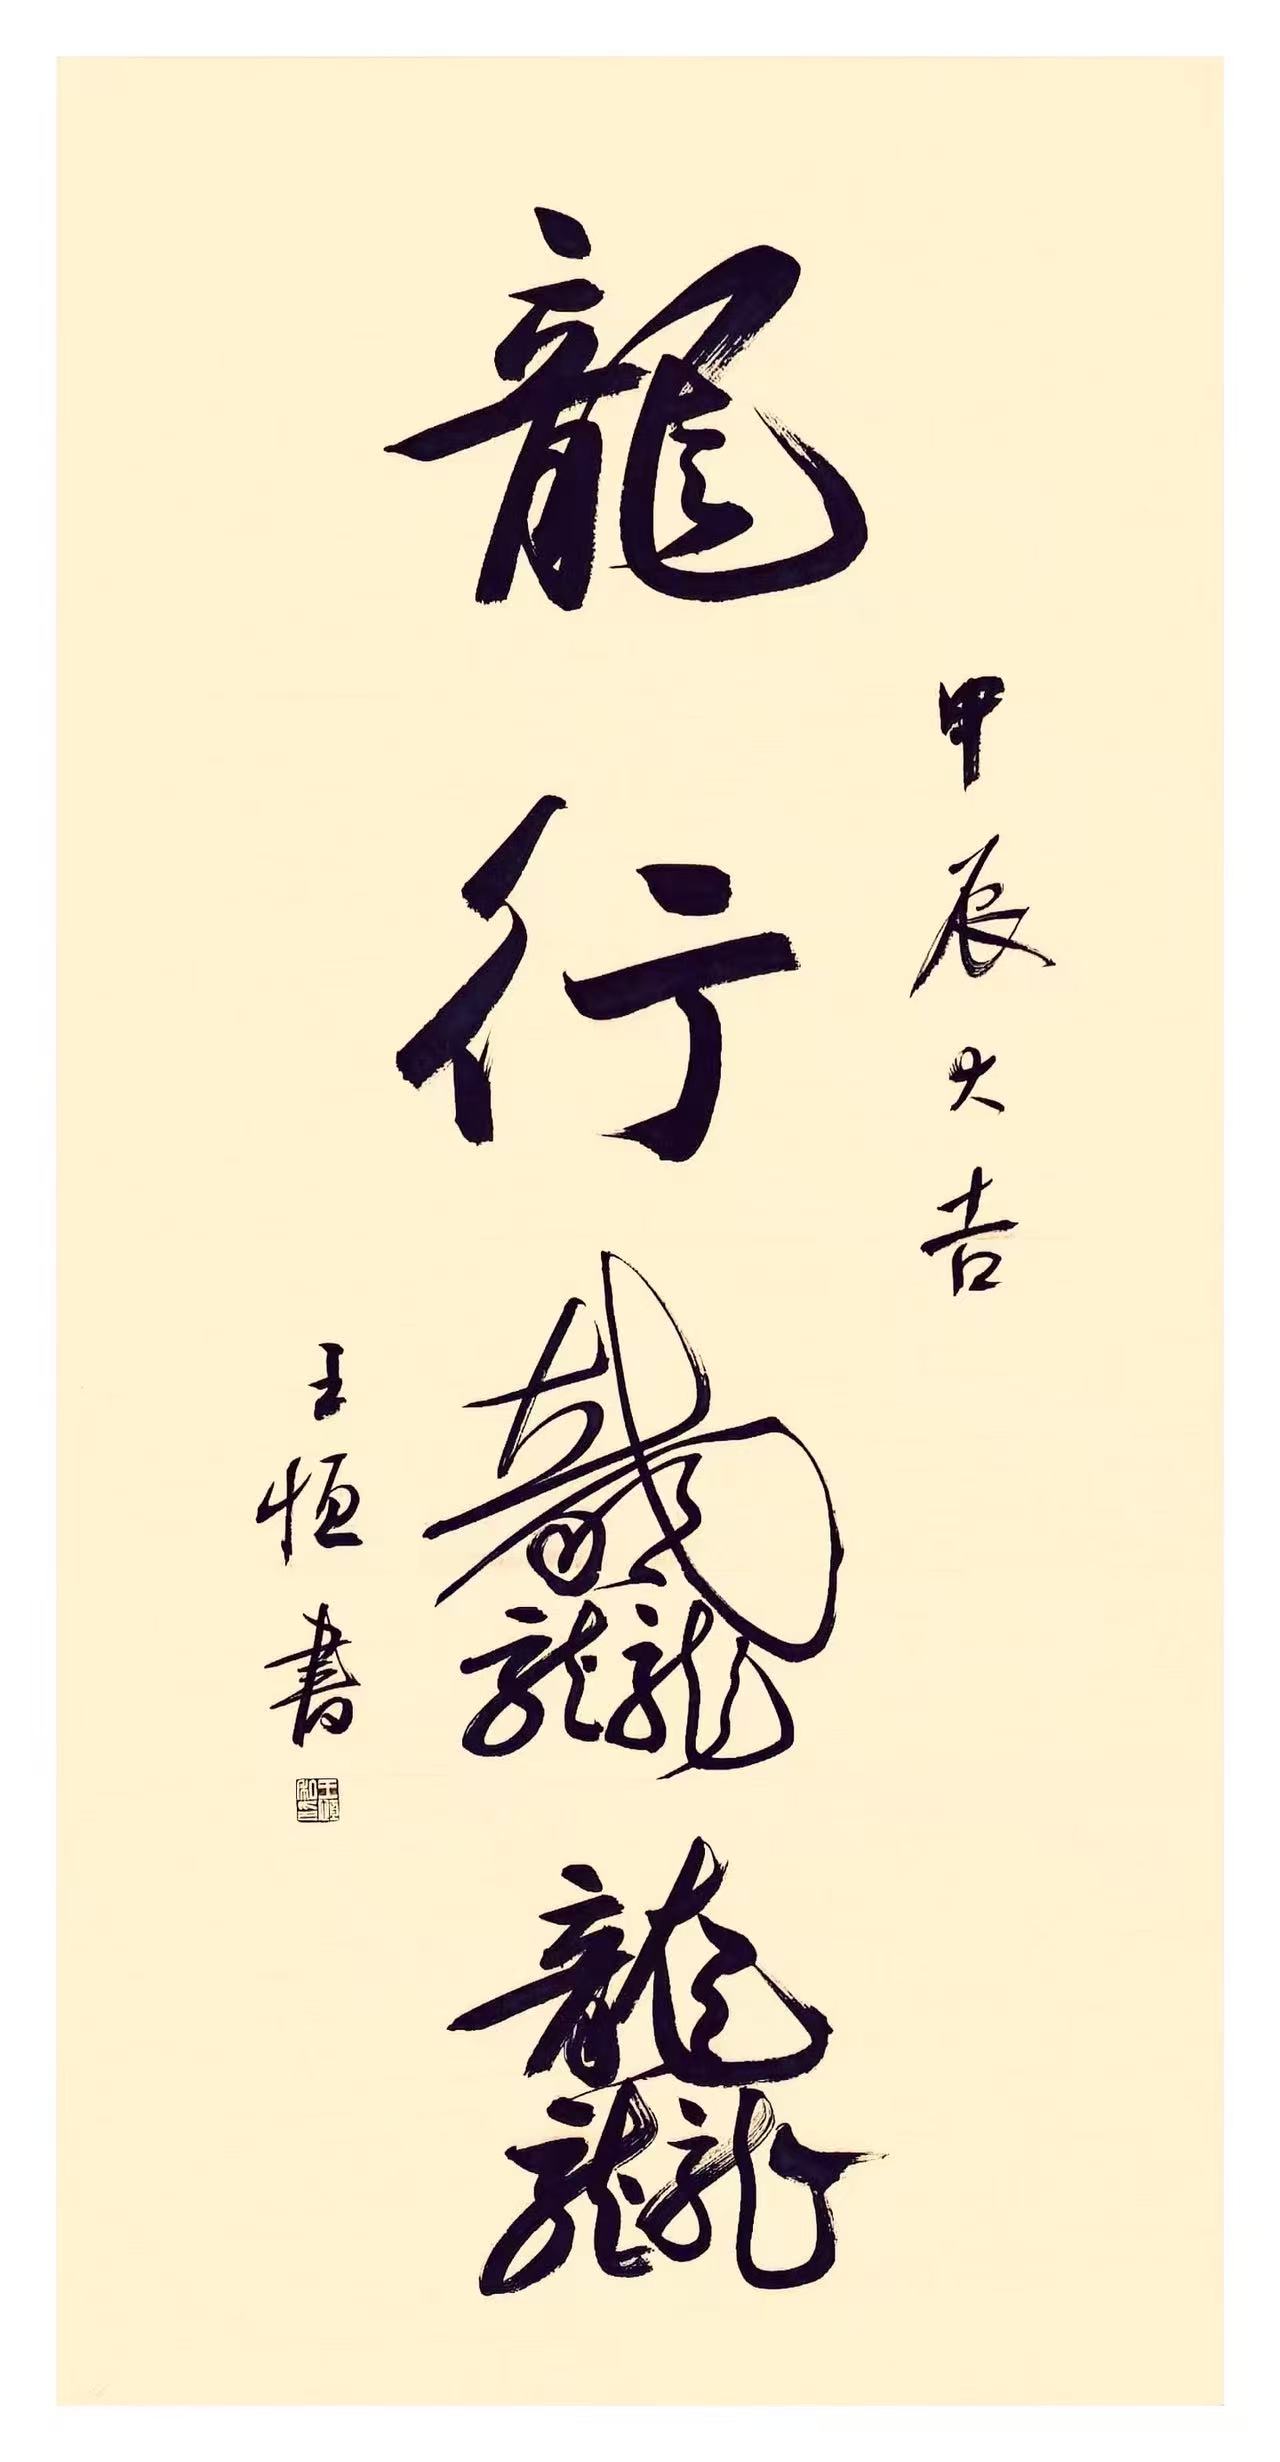 甲辰大吉
龍行龘龘
王恒書